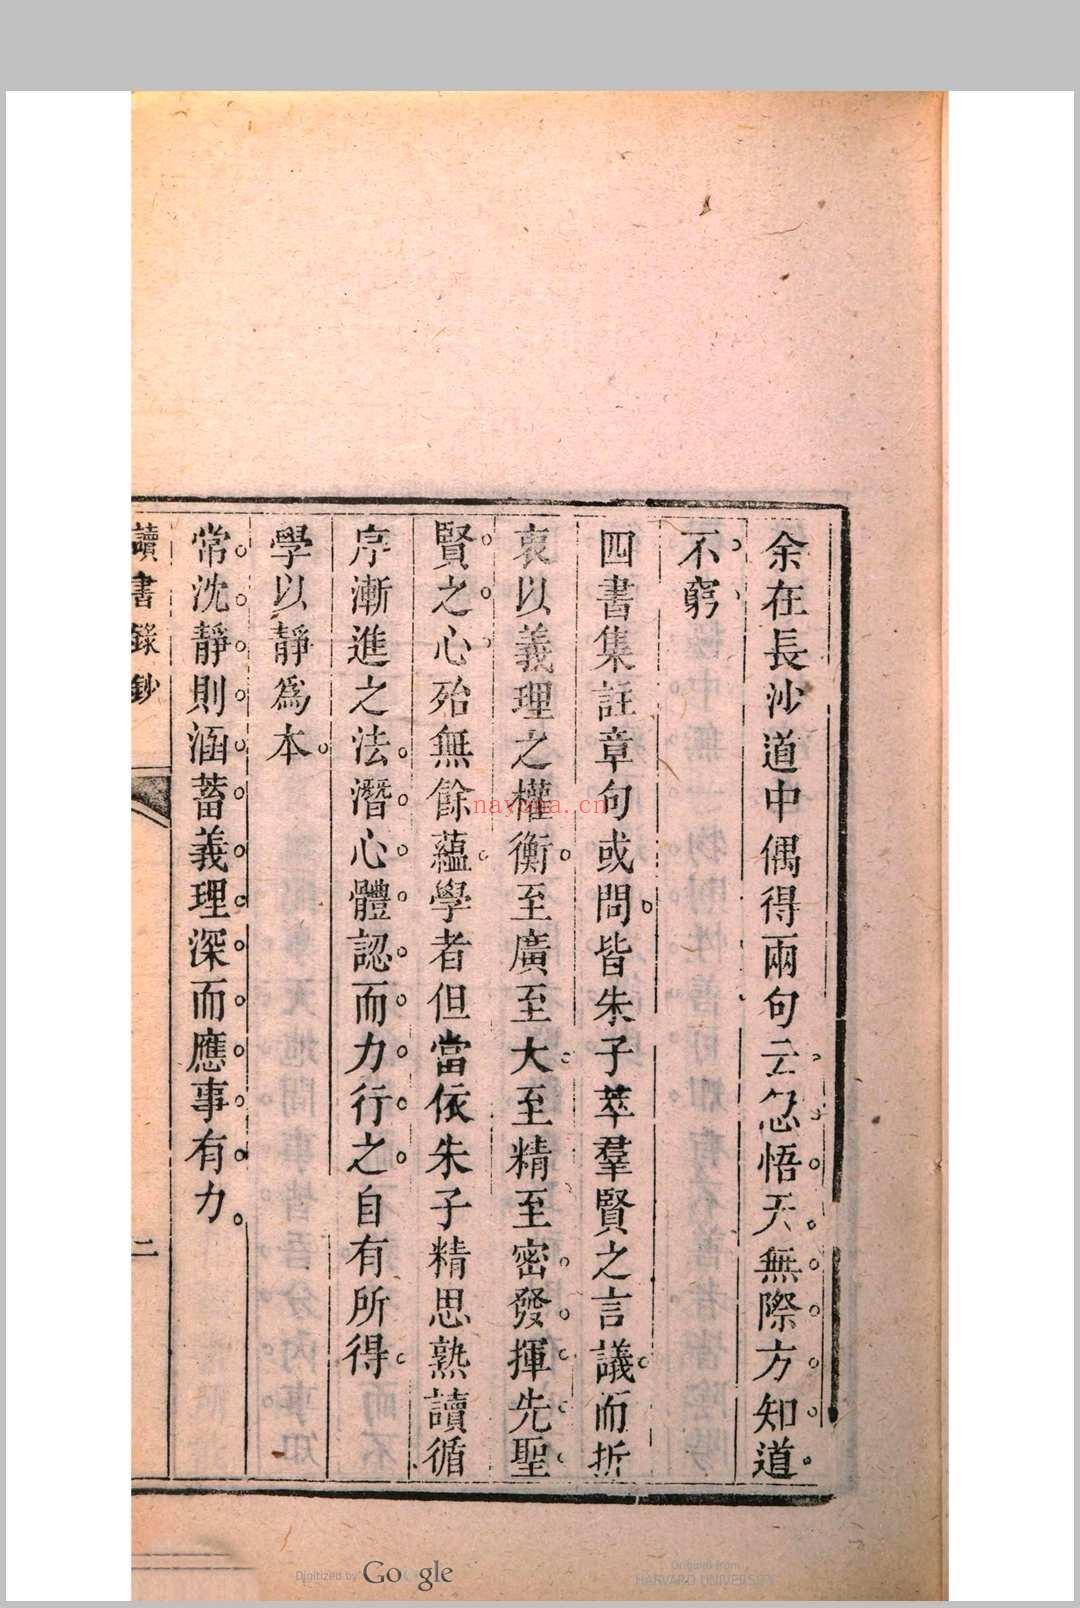 余在長沙道中偶得兩句云忽悟天無際方知道
不窮
四書集註章句或問皆朱子萃羣賢之言議而折
衷以義理之權衡至廣至大至精至密發揮先聖
賢之心殆無餘蘊學者但當依朱子精思熟讀循
序漸進之法潛心體認而力行之自有所得
學以靜爲本
常沈靜則涵蓄義理深而應事有力
讀書錄鈔
二
nayona.cn
Digitized by Google
Original from
HARVARD UNIVERSITY